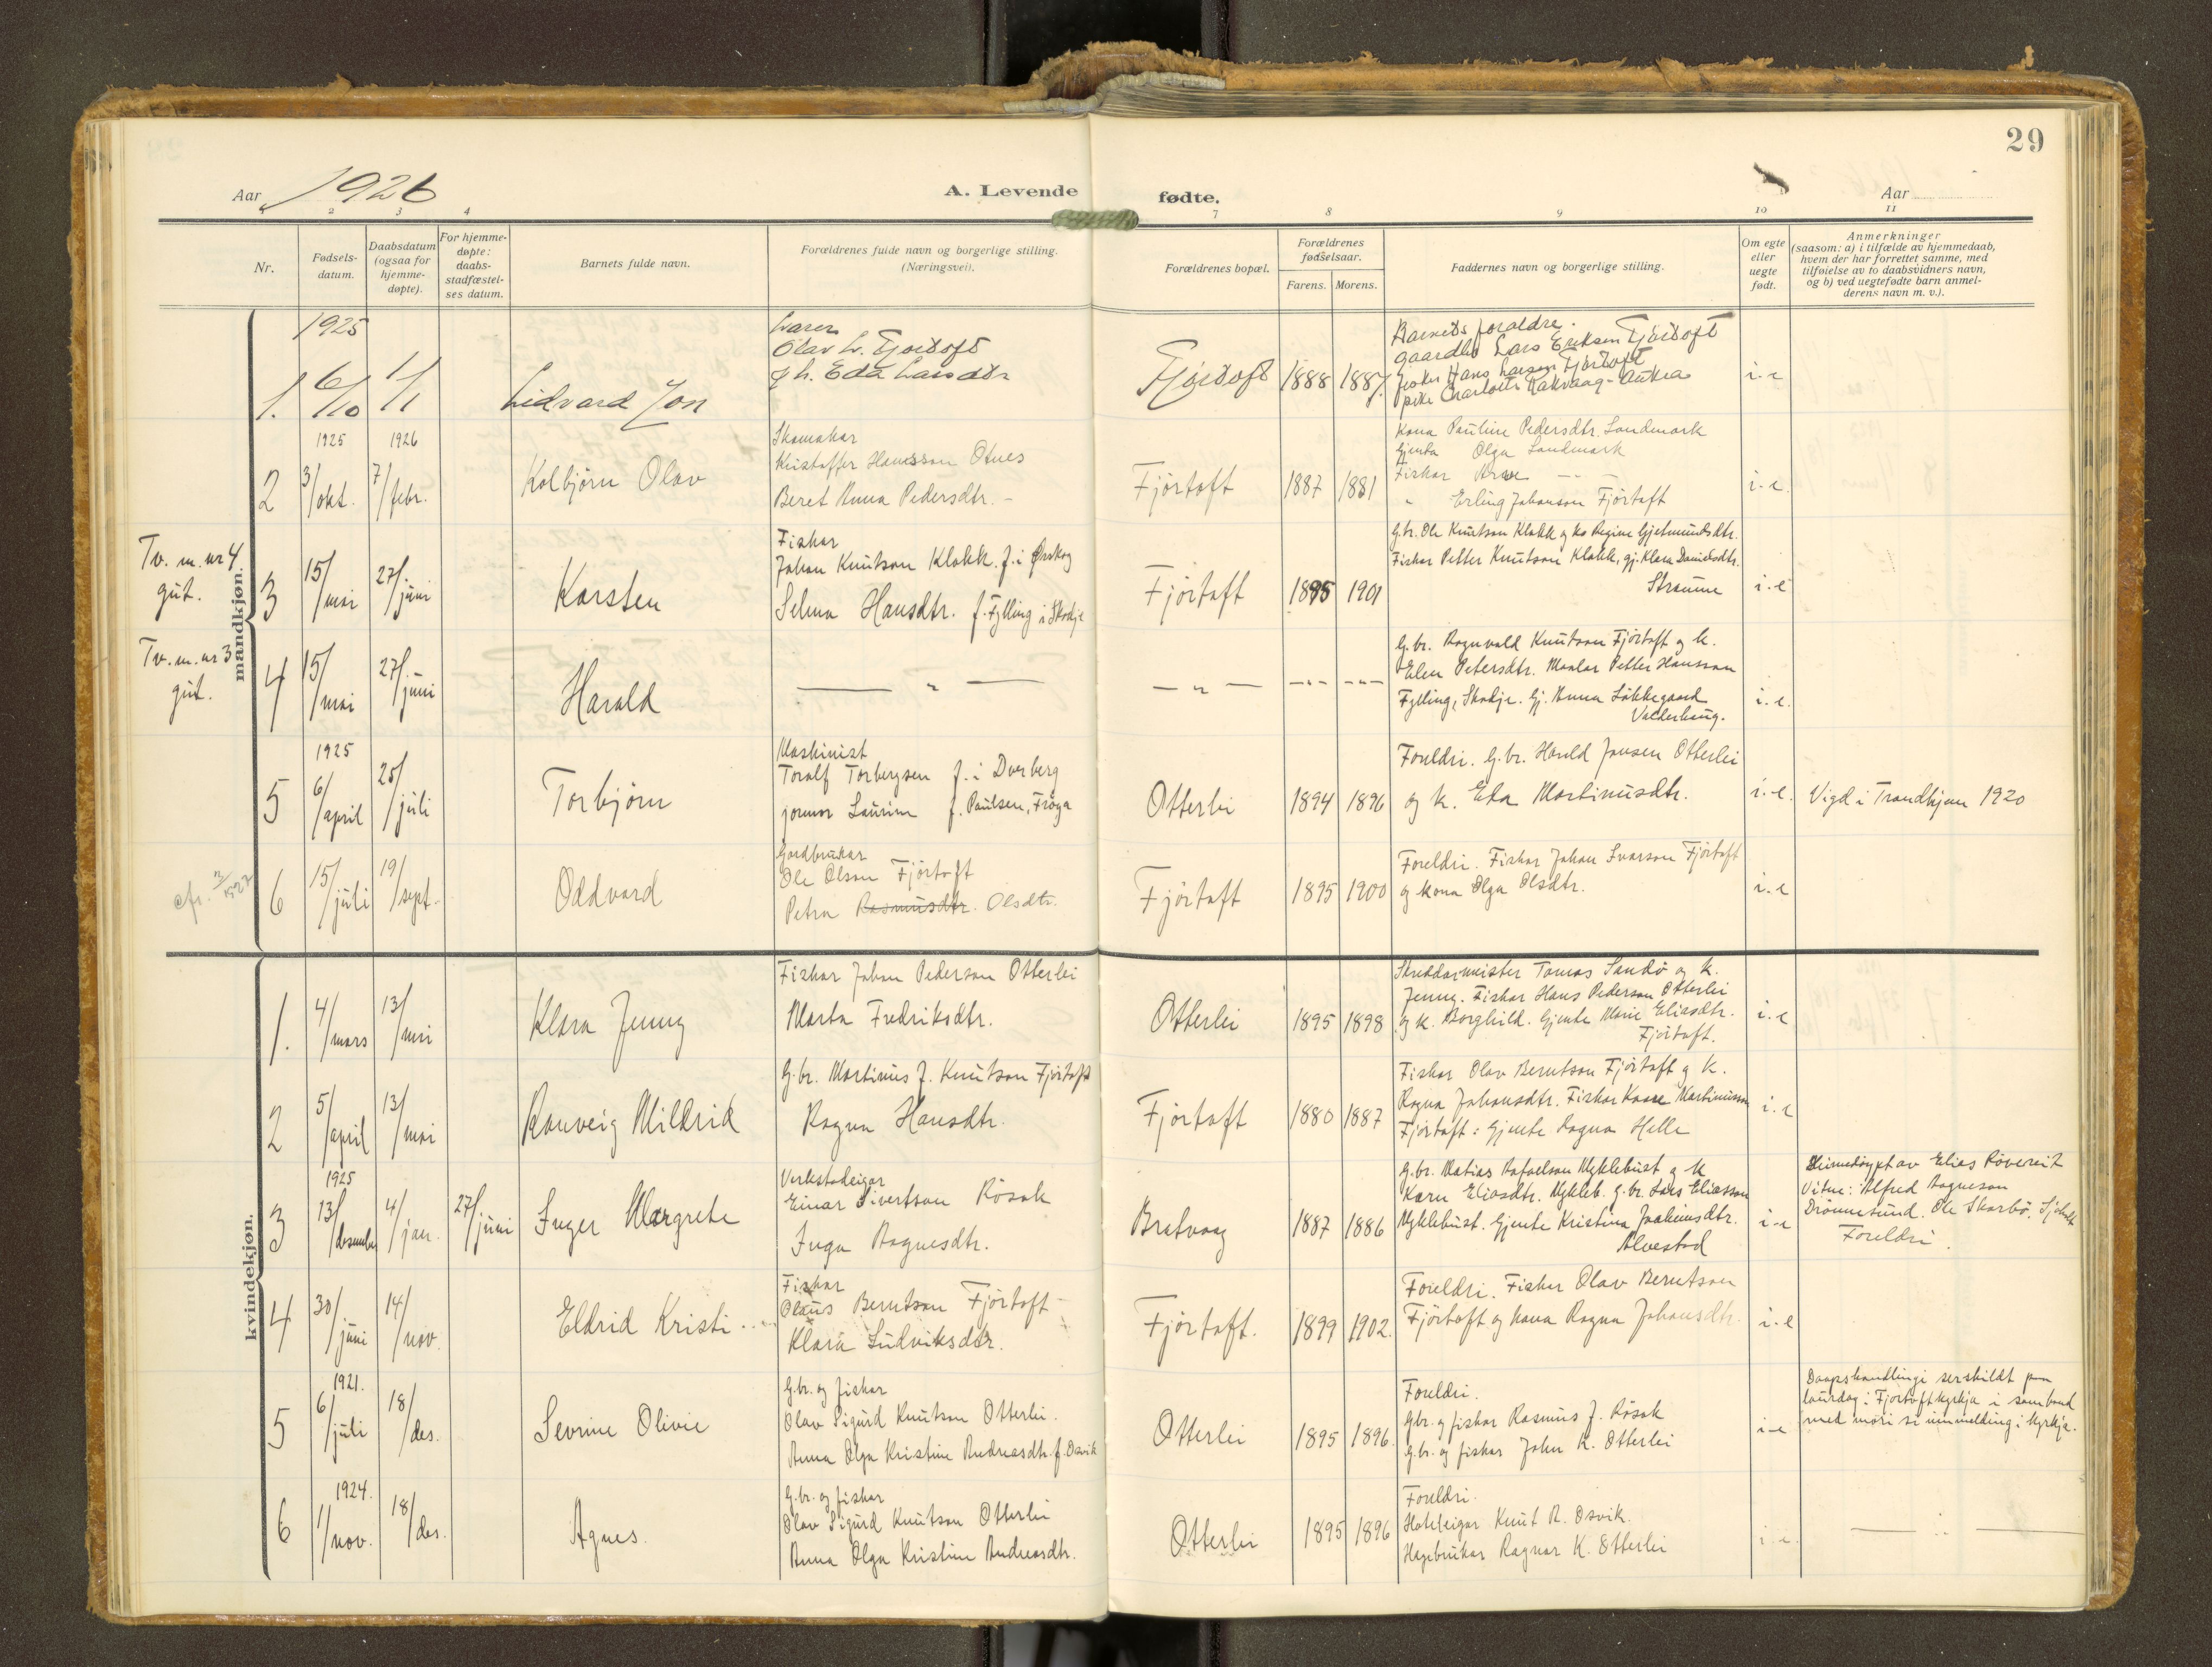 29
Aar 1926
A. Levende fødte.
Aar
2 3 4 7 8 9 10 11
Nr.
Fødsels-
datum.
Daabsdatum
(ogsaa for
hjemme-
døpte).
For hjemme-
døpte:
daabs-
stadfæstel-
ses datum.
Barnets fulde navn.
Forældrenes fulde navn og borgerlige stilling.
(Næringsvei).
Forældrenes bopæl.
Forældrenes
fødselsaar.
Farens. Morens.
Faddernes navn og borgerlige stilling.
Om egte
eller
uegte
født.
Anmerkninger
(saasom: a) i tilfælde av hjemmedaab,
hvem der har forrettet samme, med
tilføielse av to daabsvidners navn,
og b) ved uegtefødte barn anmel-
derens navn m. v.).
mandkjøn.
1925
1. 6/10 1/1
Lidvard Jon
Olav L. Fjørtoft
g h. Eda Larsdtr
Fjørtoft 1888 1887
Barnets forældre.
gaardbr Lars Eriksen Fjørtoft
fisker Hans Larsen Fjørtoft
pike Charlotte Rakvaag - Aukra
i-e
1925 1926
2 3/okt. 7/febr.
Kolbjørn Olav
Skomakar
Kristoffer Hansson Otnes
Beret Anna Pedersdtr. -
Fjørtoft 1887 1881
Kona Pauline Pedersdtr. Landmark
Gjenta Olga Landmark
Fiskar Arne - - -
" Erling Johanson Fjørtoft
i-e.
Tv. m. nr 4
gut.
3 15/mai 27/juni
Karsten
Fiskar
Johan Knutson Klokk. f. i Ørskog
Selma Hansdtr. f. Fylling i Skodje
Fjørtoft 1895 1901
G.br. Ole Knutson Klokk og ko Regine Gjetmundsdtr.
Fiskar Petter Knutson Klokk, gj. Klara Davidsdtr.
Straume
i-e
Tv. m. nr 3
gut.
4 15/mai 27/juni
Harald
— " —
— " — - " - - " -
G.br. Ragnvald Knutson Fjørtoft og k.
Elen Petersdtr. Maalar Petter Hansson
Fylling, Skodje. Gj. Anna Løkkegaard
Valderhaug.
i-e.
1925
5 6/april 25/juli
Torbjørn
Maskinist
Toralf Torbergsen f. i Dverberg
Jormor Laurine f. Paulsen, Frøya
Otterlei 1894 1896
Foreldri. G.br. Harald Jonsen Otterlei
og k. Eda Martinusdtr.
i-e.
Vigd i Trondhjem 1920
cfr. 2/1927
6 15/juli 19/sept.
Oddvard
Gardbrukar
Ole Olson Fjørtoft
Petra Rasmusdtr. Olsdtr.
Fjørtoft 1895 1900
Foreldri. Fiskar Johan Ivarson Fjørtoft
og kona Olga Olsdtr.
i-e
kvindekjøn.
1. 4/mars 13/mai
Klara Jenny
Fiskar Johan Pederson Otterlei
Marta Fredriksdtr.
Otterlei 1895 1898
Skreddarmeister Tomas Sandø og k.
Jenny. Fiskar Hans Pederson Otterlei
og k. Borghild. Gjente Marie Eliasdtr.
Fjørtoft.
i-e
2 5/april 13/mai
Ranveig Mildrid
G.br. Martinus J. Knutson Fjørtoft
Ragna Hansdtr.
Fjørtoft 1880 1887
Fiskar Olav Berntson Fjørtoft og k.
Ragna Johansdtr. Fiskar Kaare Martinusson
Fjørtoft: Gjente Dagna Helle
i-e
1925
3 13/desember 4/jan. 27/juni
Inger Margrete
Verkstadeigar
Einar Sivertson Røsok
Inga Aagnesdtr.
Bratvaag 1887 1886
G.br. Matias Rafaelson Myklebust og k
Karn Eliasdtr. Mykleb. g.br. Lars Eliasson
Myklebust. Gjente Kristina Joakimsdtr.
Alvestad
i-e
Heimedøypt av Elias Røvereit
Vitne: Alfred Aagneson
Drønnesund. Ole Skarbø. Sjøholt
Foreldri.
4 30/juni 14/nov.
Eldrid Kristi
Fiskar
Olaus Berntson Fjørtoft
Klara Ludviksdtr.
Fjørtoft. 1899 1902.
Foreldri. Fisker Olav Berntson
Fjørtoft og kona Ragna Johansdtr.
i-e
1921.
5 6/juli 18/des.
Sevrine Olivie
G.br. og fiskar
Olav Sigurd Knutson Otterlei.
Anna Olga Kristine Andreasdtr. f. Osvik
Otterlei 1895 1896.
Foreldri.
Gbr. og fiskar Rasmus J. Røsok
G.br. og fiskar John K. Otterlei
i-e
Daapshandlingi serskildt paa
laurdag i Fjørtoftkyrkja i samband
med mori si innmelding i kyrkja.
1924.
6 1/nov. 18/des.
Agnes.
G.br. og fiskar
Olav Sigurd Knutson Otterlei
Anna Olga Kristine Andreasdtr.
Otterlei 1895 1896
Foreldri.
Hotelleigar Knut A. Osvik.
Hagebrukar Ragnar K. Otterlei
i-e.
— " —